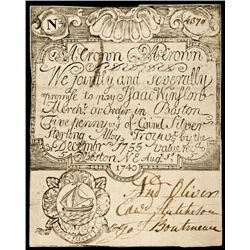 No 4370
A Crown A Crown
We jointly and severally
promise to pay Isaac Winslow
Merch.t or Order in Boston
Five penny w.t of Coined Silver
Sterling Alloy or by the
December 1755 value rec.d
Boston N E Aug.st
1740
And Oliver
Edw.d Hutchinson
Ja.s Boutineau